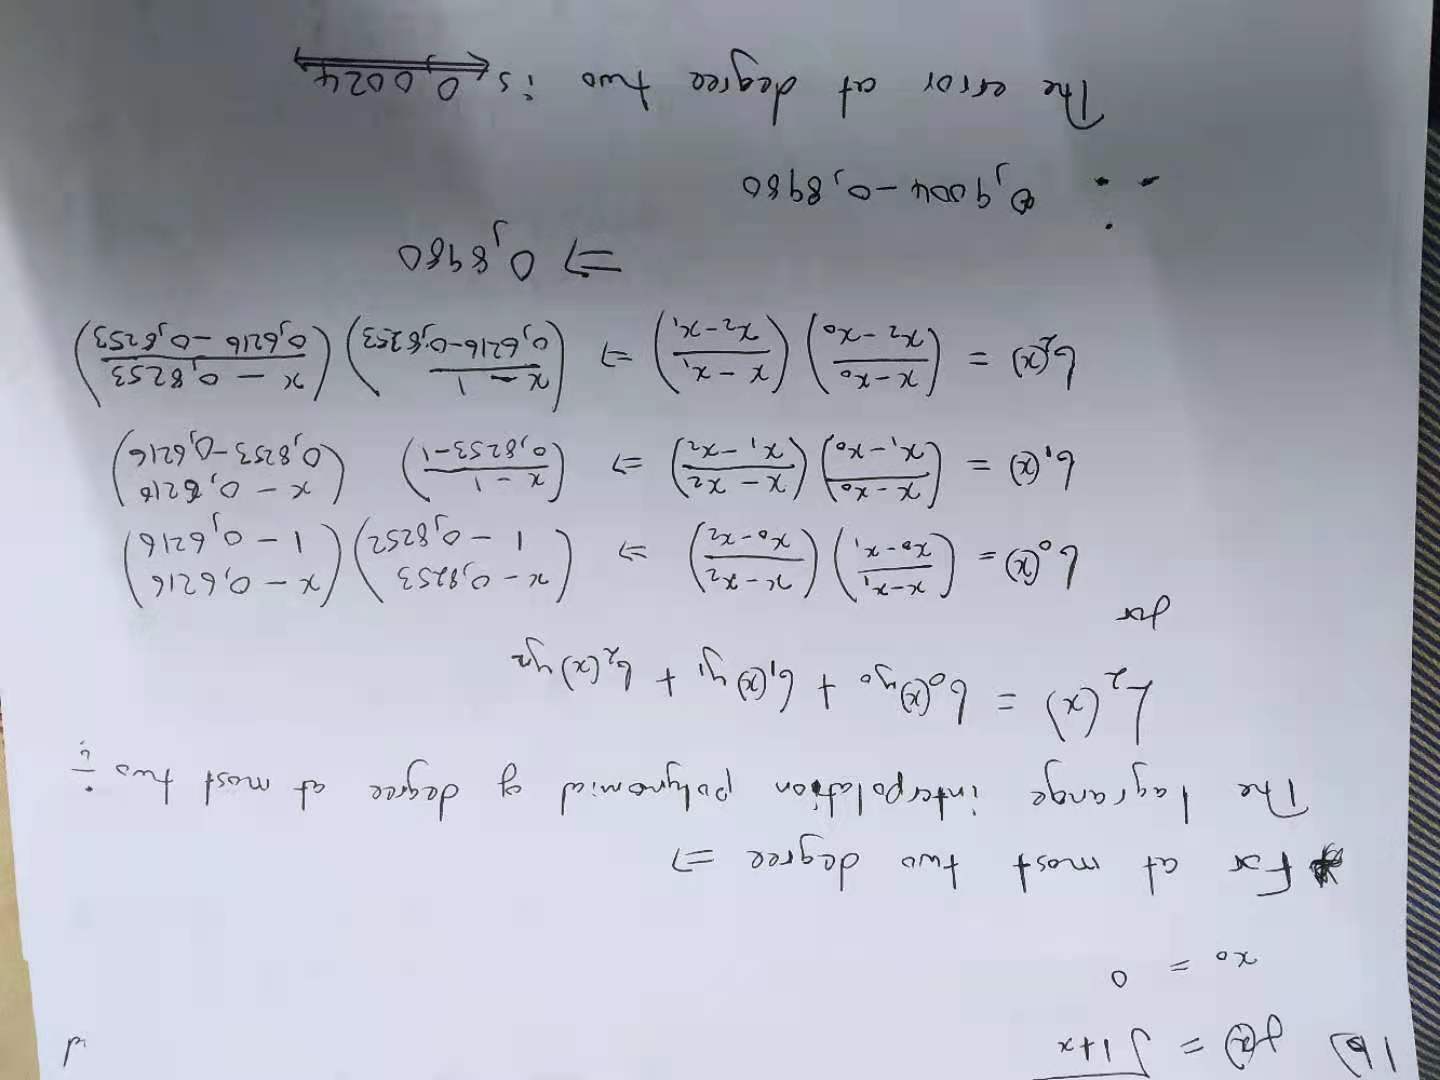 1b) f(x) = √1+x
x₀ = 0
For at most two degree ⇒
The lagrange interpolation polynomial of degree at most two is
L₂(x) = b₀(x)y₀ + b₁(x)y₁ + b₂(x)y₂
for
b₀(x) = (x-x₁/x₀-x₁)(x-x₂/x₀-x₂) ⇒ (x-0,8253/1-0,8252)(x-0,6216/1-0,6216)
b₁(x) = (x-x₀/x₁-x₀)(x-x₂/x₁-x₂) ⇒ (x-1/0,8253-1)(x-0,6216/0,8253-0,6216)
b₂(x) = (x-x₀/x₂-x₀)(x-x₁/x₂-x₁) ⇒ (x-1/0,6216-0,8253)(x-0,8253/0,6216-0,8253)
⇒ 0,8980
∴ 0,9004-0,8980
The error at degree two is 0,0024